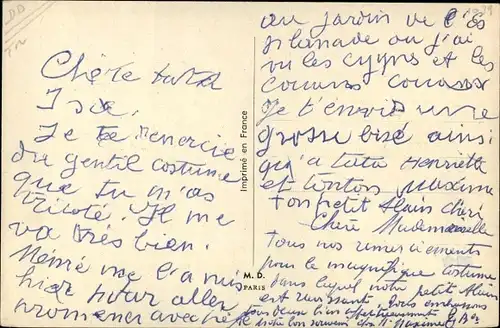 Chère tata
Isa.
Je te remercie
du gentil costume
que tu m'as
tricoté. Il me
va très bien.
Mémé me l'a mis
hier pour aller
promener avec
Imprimé en France
M. D.
PARIS
au jardin de l'Es
planade où j'ai
vu les cygnes et les
Je t'envoie une
grosse bise ainsi
qu'à tata Henriette
et tonton Maxime
Ton petit Alain chéri
Chère Mademoiselle
Tous nos remerciements
pour le magnifique costume
dans lequel notre petit Alain
est ravissant. Nous embrassons
tous deux bien affectueusement